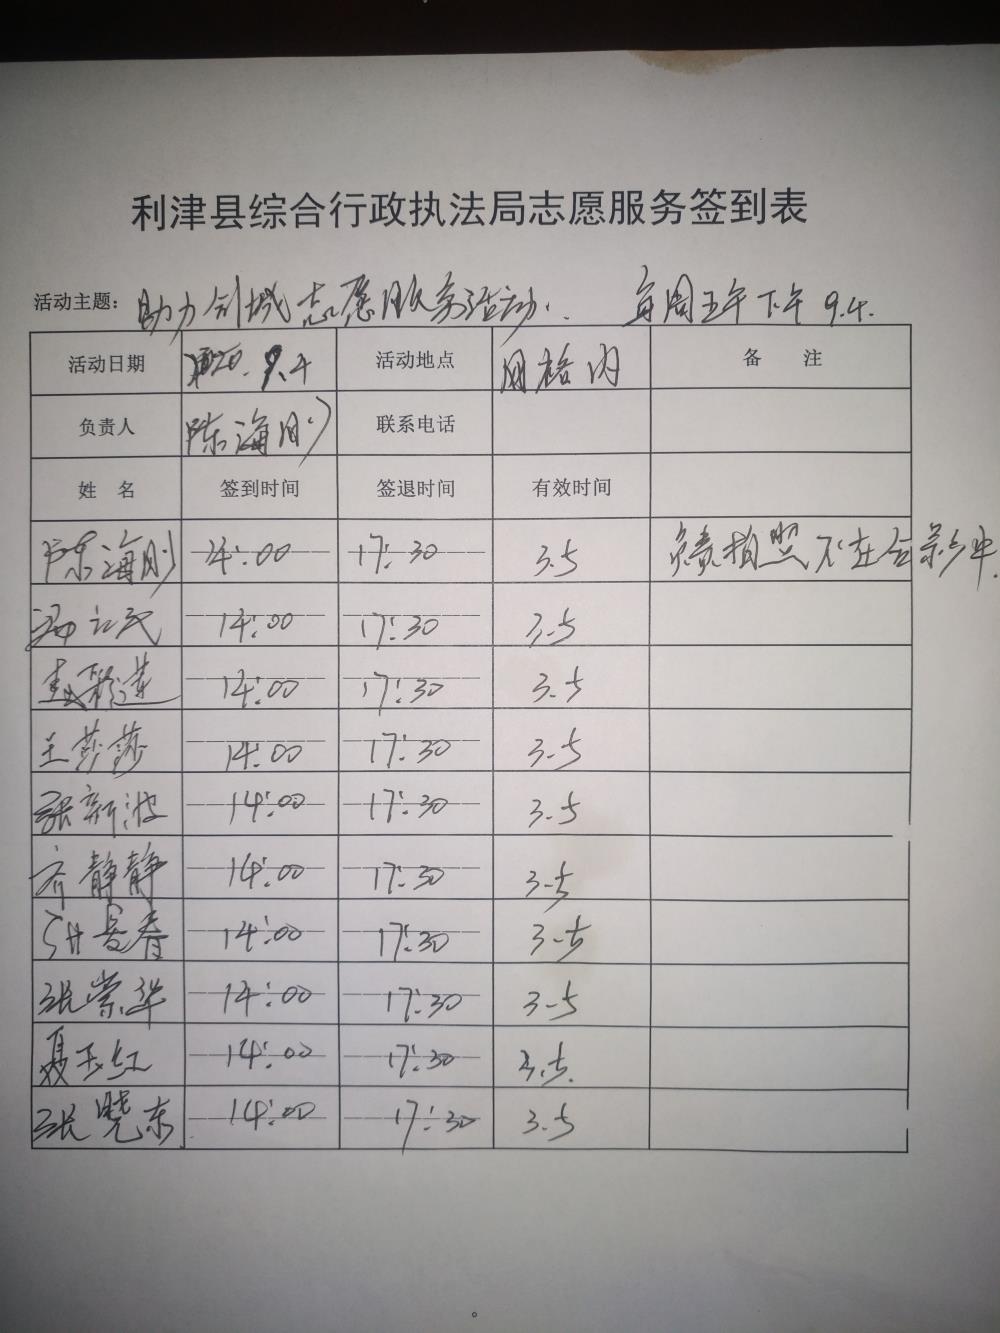 利津县综合行政执法局志愿服务签到表
活动主题: 助力创城志愿服务活动. 每周五午下午 9.4.
活动日期 2020.9.4 活动地点 网格内 备 注
负责人 陈海刚 联系电话
姓 名 签到时间 签退时间 有效时间
陈海刚 14:00 17:30 3.5 负责拍照不在合影中.
冯立民 14:00 17:30 3.5
14:00 17:30 3.5
王莎莎 14:00 17:30 3.5
张新波 14:00 17:30 3.5
齐静静 14:00 17:30 3.5
长春 14:00 17:30 3.5
张崇华 14:00 17:30 3.5
聂玉红 14:00 17:30 3.5
张晓东 14:00 17:30 3.5